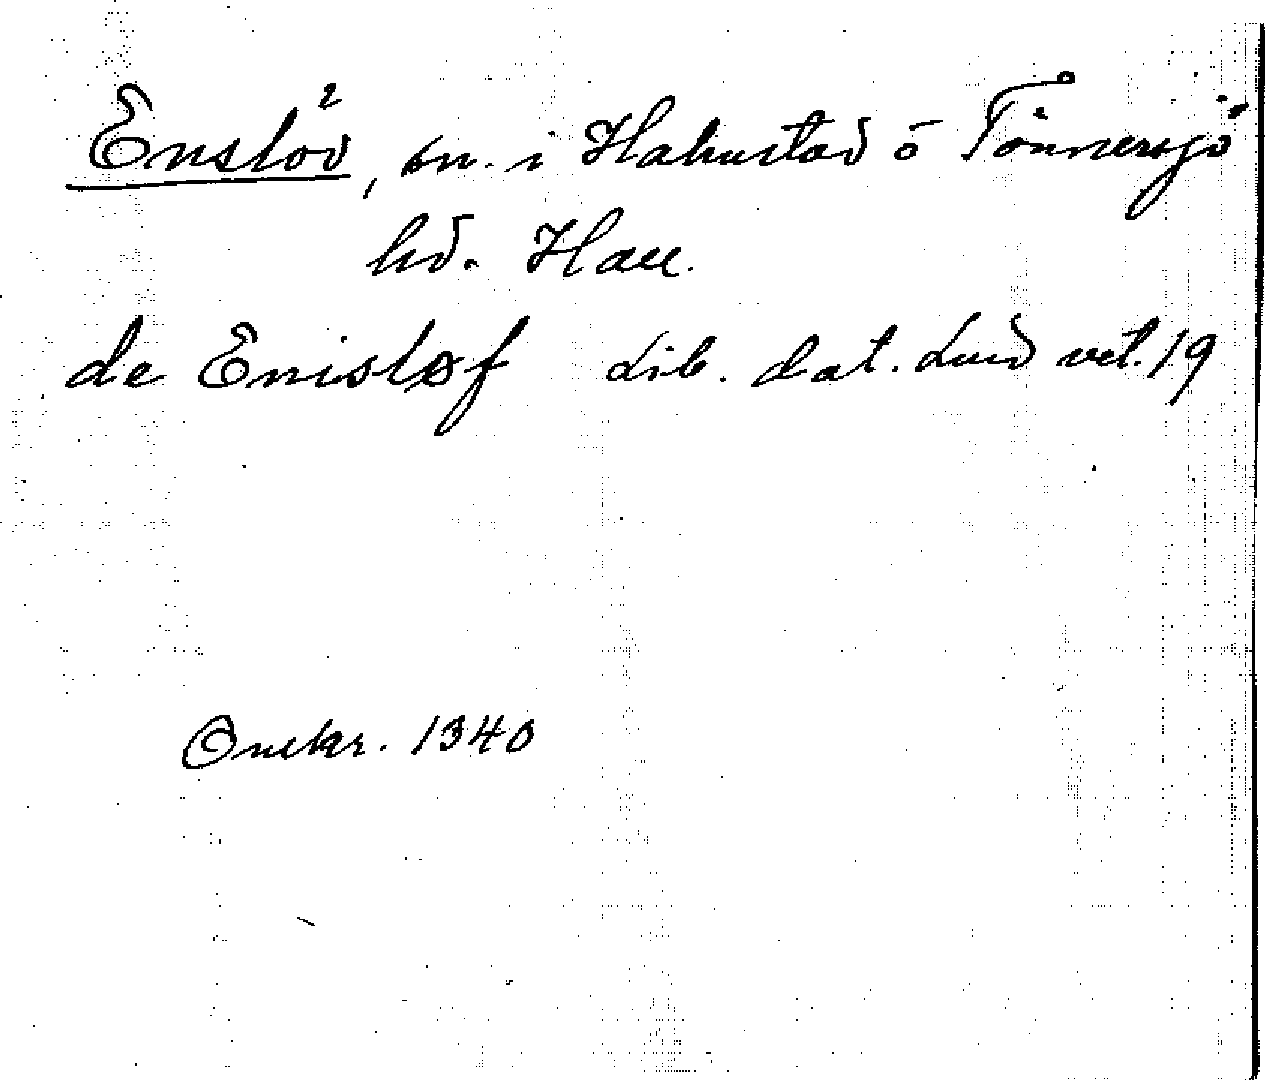 Enslöv, sn. i Halmstad o Tönnersjö
hd. Hall.
de Enisløf Lib. dat. Lund vet. 19
Omkr. 1340